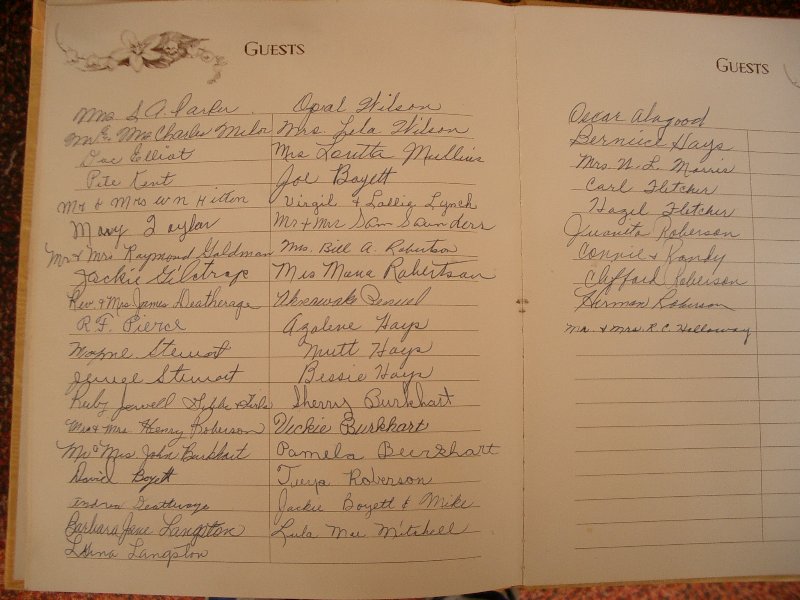 GUESTS
Mrs L A. Parker
Mr & Mrs Charles
Doc Elliot
Pete Kent
Mr & Mrs W N Hitton
Mary Taylor
Mr & Mrs Raymond Goldman
Jackie Gilstrap
Rev. & Mrs James Deatherage
R. F. Pierce
Wayne Stewart
Stewart
Ruby Jewell & Girls
Mr & Mrs Henry Roberson
Mr & Mrs John Burkhart
David Boyett
Barbara Jane Langston
Langston
Opal Wilson
Mrs Lola Wilson
Mrs Loretta Mullins
Joe Boyett
Virgil & Lynch
Mr & Mrs Sam Saunders
Mrs. Bill A. Robertson
Mrs Mana Robertson
Azalene Hays
Mutt Hays
Bessie Hays
Sherry Burkhart
Vickie Burkhart
Pamela Burkhart
Roberson
Jackie Boyett & Mike
Lula Mae Mitchell
GUESTS
Oscar Alagood
Berniece Hays
Mrs N. L. Morris
Carl Fletcher
Hazel Fletcher
Juanita Roberson
Connie & Randy
Clifford Roberson
Herman Roberson
Mr. & Mrs R. C. Holloway